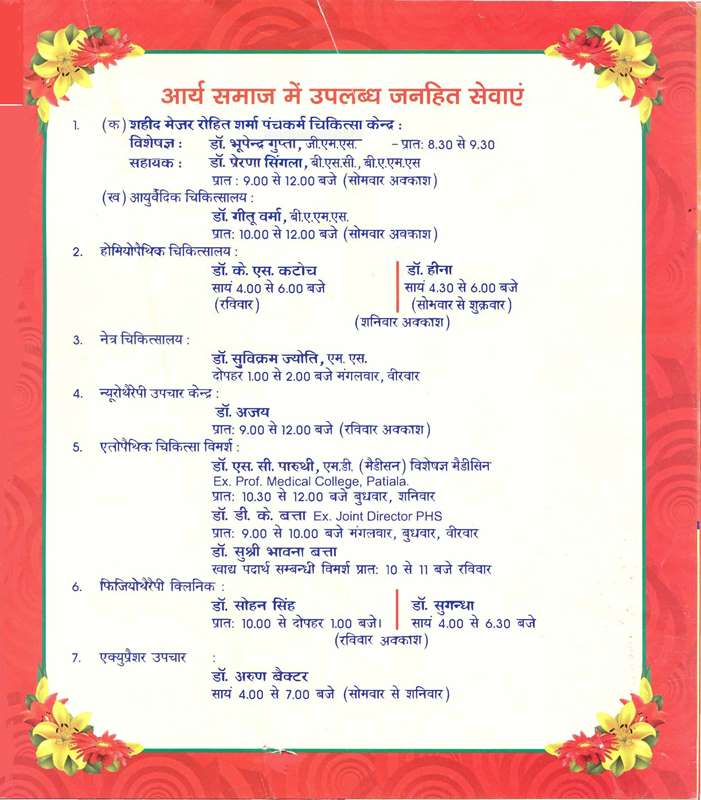 आर्य समाज में उपलब्ध जनहित सेवाएं
1. (क) शहीद मेजर रोहित शर्मा पंचकर्म चिकित्सा केन्द्र :
विशेषज्ञ : डॉ. भूपेन्द्र गुप्ता, जी.एम.एस. - प्रात: 8.30 से 9.30
सहायक : डॉ. प्रेरणा सिंगला, बी.एस.सी., बी.ए.एम.एस
प्रात : 9.00 से 12.00 बजे (सोमवार अवकाश)
(ख) आयुर्वेदिक चिकित्सालय :
डॉ. गीतू वर्मा, बी.ए.एम.एस.
प्रात: 10.00 से 12.00 बजे (सोमवार अवकाश)
2. होमियोपैथिक चिकित्सालय :
डॉ. के. एस. कटोच डॉ. हीना
सायं 4.00 से 6.00 बजे सायं 4.30 से 6.00 बजे
(रविवार) (सोमवार से शुक्रवार)
(शनिवार अवकाश)
3. नेत्र चिकित्सालय :
डॉ. सुविक्रम ज्योति, एम. एस.
दोपहर 1.00 से 2.00 बजे मंगलवार, वीरवार
4. न्यूरोथैरेपी उपचार केन्द्र :
डॉ. अजय
प्रात: 9.00 से 12.00 बजे (रविवार अवकाश)
5. एलोपैथिक चिकित्सा विमर्श :
डॉ. एस. सी. पारुथी, एम.डी. (मैडीसन) विशेषज्ञ मैडीसिन
Ex. Prof. Medical College, Patiala.
प्रात: 10.30 से 12.00 बजे बुधवार, शनिवार
डॉ. डी. के. बत्ता Ex. Joint Director PHS
प्रात: 9.00 से 10.00 बजे मंगलवार, बुधवार, वीरवार
डॉ. सुश्री भावना बत्ता
खाद्य पदार्थ सम्बन्धी विमर्श प्रात: 10 से 11 बजे रविवार
6. फिजियोथैरेपी क्लिनिक :
डॉ. सोहन सिंह डॉ. सुगन्धा
प्रात: 10.00 से दोपहर 1.00 बजे। सायं 4.00 से 6.30 बजे
(रविवार अवकाश)
7. एक्युप्रैशर उपचार :
डॉ. अरुण बैक्टर
सायं 4.00 से 7.00 बजे (सोमवार से शनिवार)